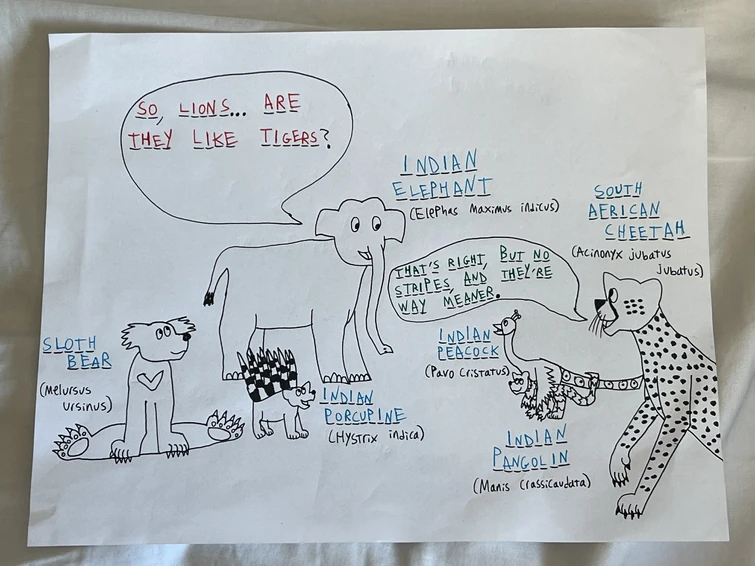 SO, LIONS... ARE
THEY LIKE TIGERS?
INDIAN
ELEPHANT
(Elephas Maximus indicus)
SOUTH
AFRICAN
CHEETAH
(Acinonyx jubatus
jubatus)
THAT'S RIGHT, BUT NO
STRIPES, AND THEY'RE
WAY MEANER.
SLOTH
BEAR
(Melursus
ursinus)
INDIAN
PEACOCK
(Pavo cristatus)
INDIAN
PORCUPINE
(Hystrix indica)
INDIAN
PANGOLIN
(Manis crassicaudata)